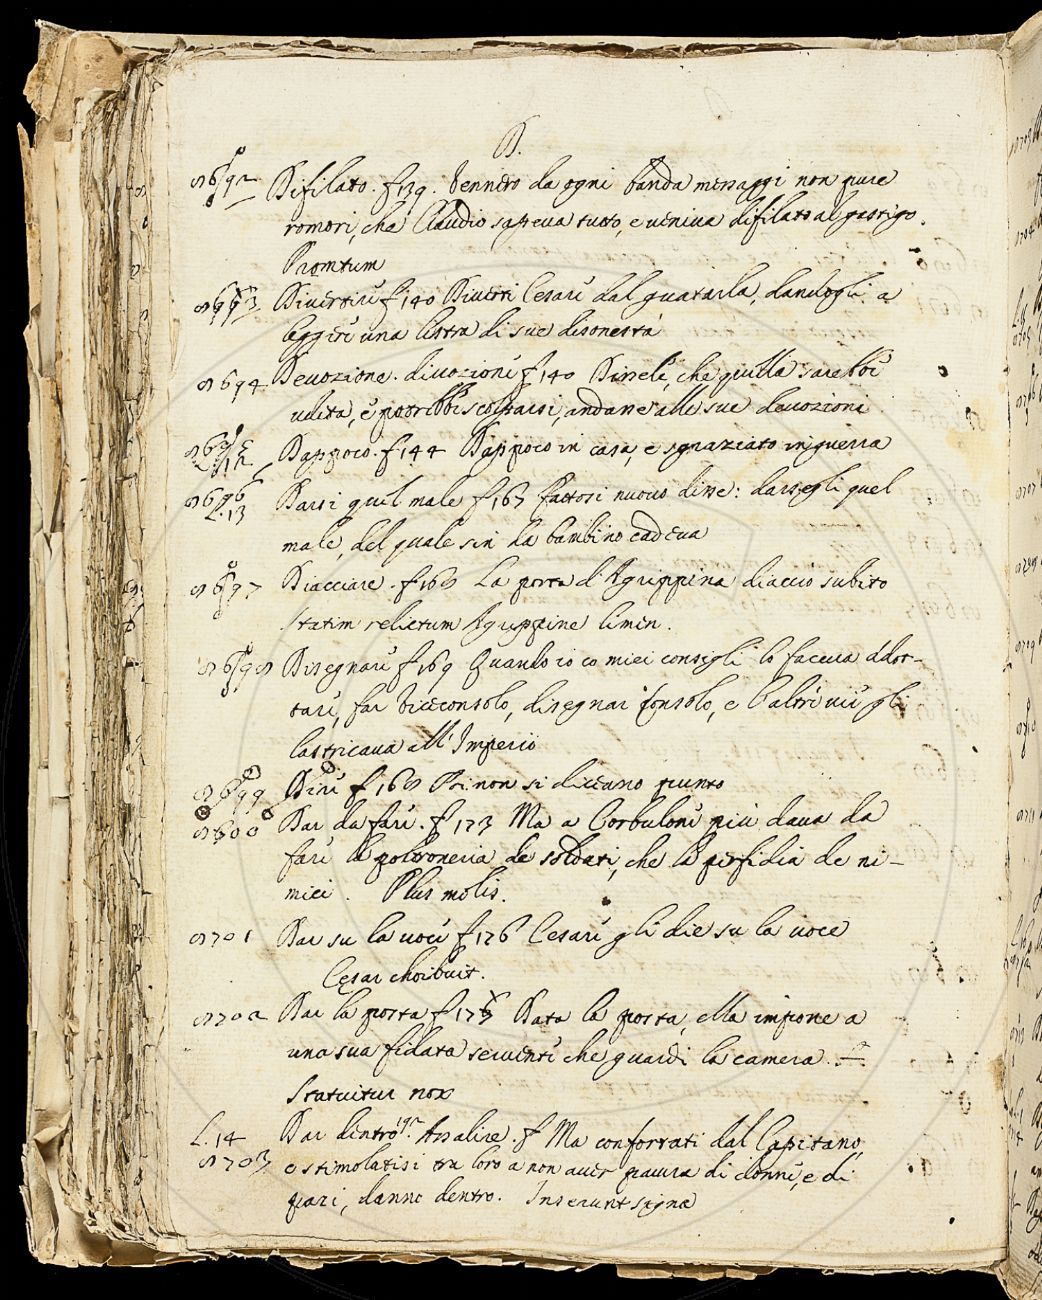 D.
8692 Difilato. f 139. Vennero da ogni banda messaggi non pure
romori, che Claudio sapeva tutto, e veniva difilato al gastigo.
Promtum
8693 Divertire f 140 Divertì Cesare dal guatarla, dandogli a
leggere una listra di sue disonestà
8694 Devozione. divozioni f 140 Dissele, che quella sarebbe
udita, e potrebbe scolparsi, andasse alle sue devozioni
8695 L. 12 Dappoco. f 144 Dappoco in casa, e sgraziato in guerra
8696 L. 13 Darsi quel male f 167 fattosi nuovo disse: darsegli quel
male, del quale sin da bambino cadeva
8697 Diacciare. f 168 La porta d'Agrippina diacciò subito
statim relictum Agrippine limen.
8698 Disegnare f 169 Quando io co miei consigli lo faceva ador-
tare, far Viceconsolo, disegnar Consolo, e l'altre vie gli
lastricava all'Imperio
8699 Dire f 168 Poi non si diceano punto
8600 Dar da fare. f 173 Ma a Corbulone più dava da
fare la poltroneria de soldati, che la perfidia de ni-
mici. Plus molis.
8701 Dar su la voce f 176 Cesare gli die su la voce
Cesar choibuit.
8702 Dar la posta f 178 Data la posta, ella impone a
una sua fidata servente che guardi la camera.
Statuitur nox
L. 14 Dar dentro. Assalire. f Ma confortati dal Capitano,
8703 e stimolatisi tra loro a non aver paura di donne, e di
pazi, danno dentro. Inserunt signa